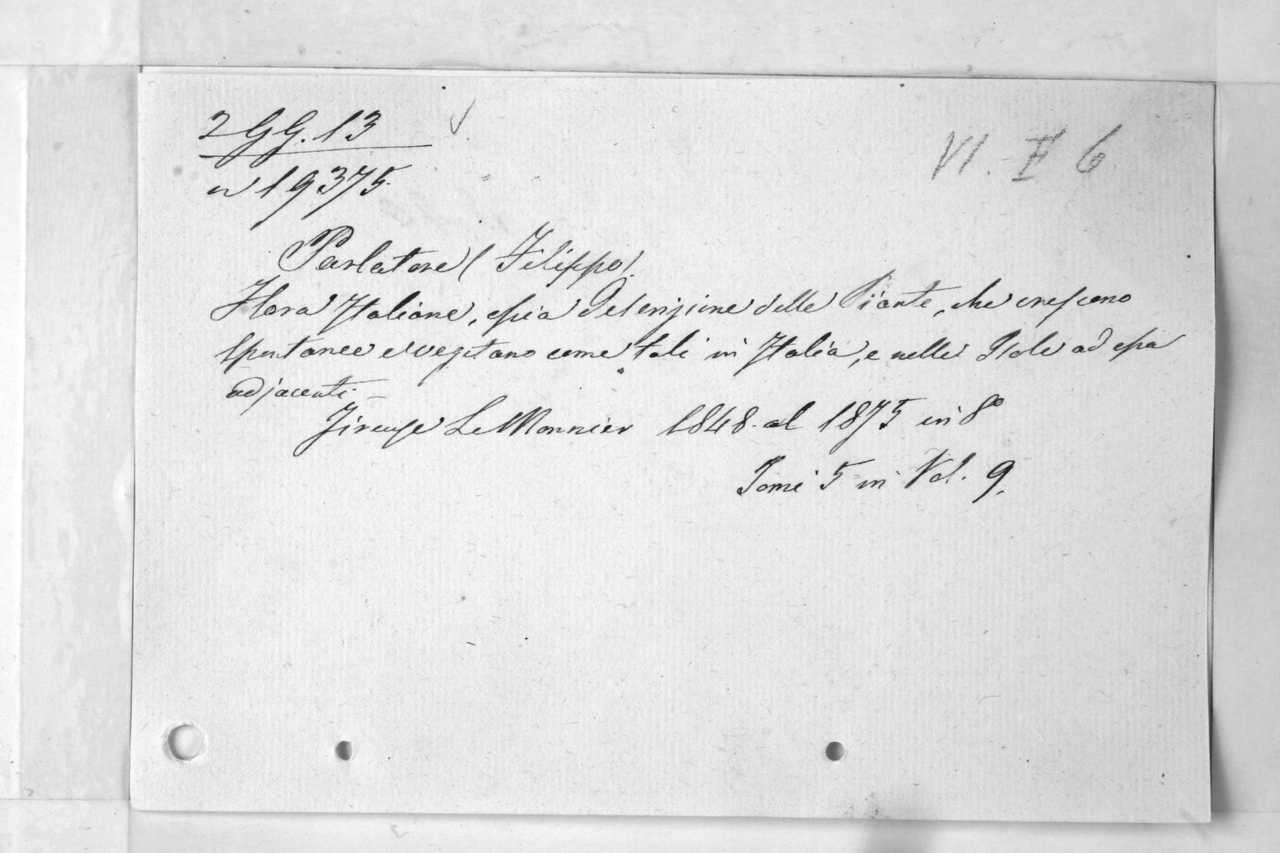 2 GG. 13
n 19375.
VI. F 6
Parlatore (Filippo).
Flora Italiana, ossia Descrizione delle Piante, che crescono
spontanee e vegetano come tali in Italia, e nelle Isole ad essa
adjacenti –
Firenze Le Monnier 1848. al 1875 in 8º
Tomi 5 in Vol. 9.